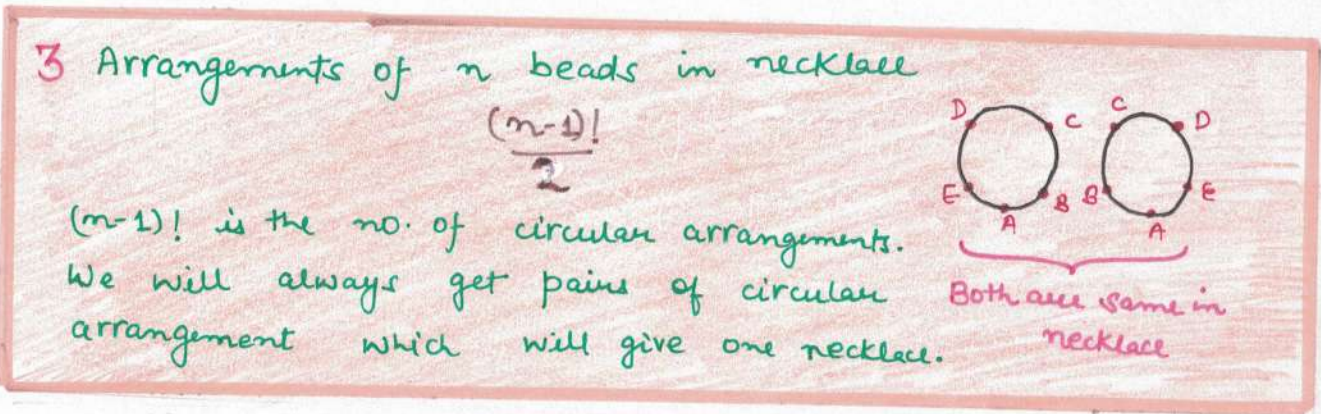 3 Arrangements of n beads in necklace
(n-1)!
2
D C C D
E B B E
A A
(n-1)! is the no. of circular arrangements.
We will always get pairs of circular
arrangement which will give one necklace.
Both are same in
necklace